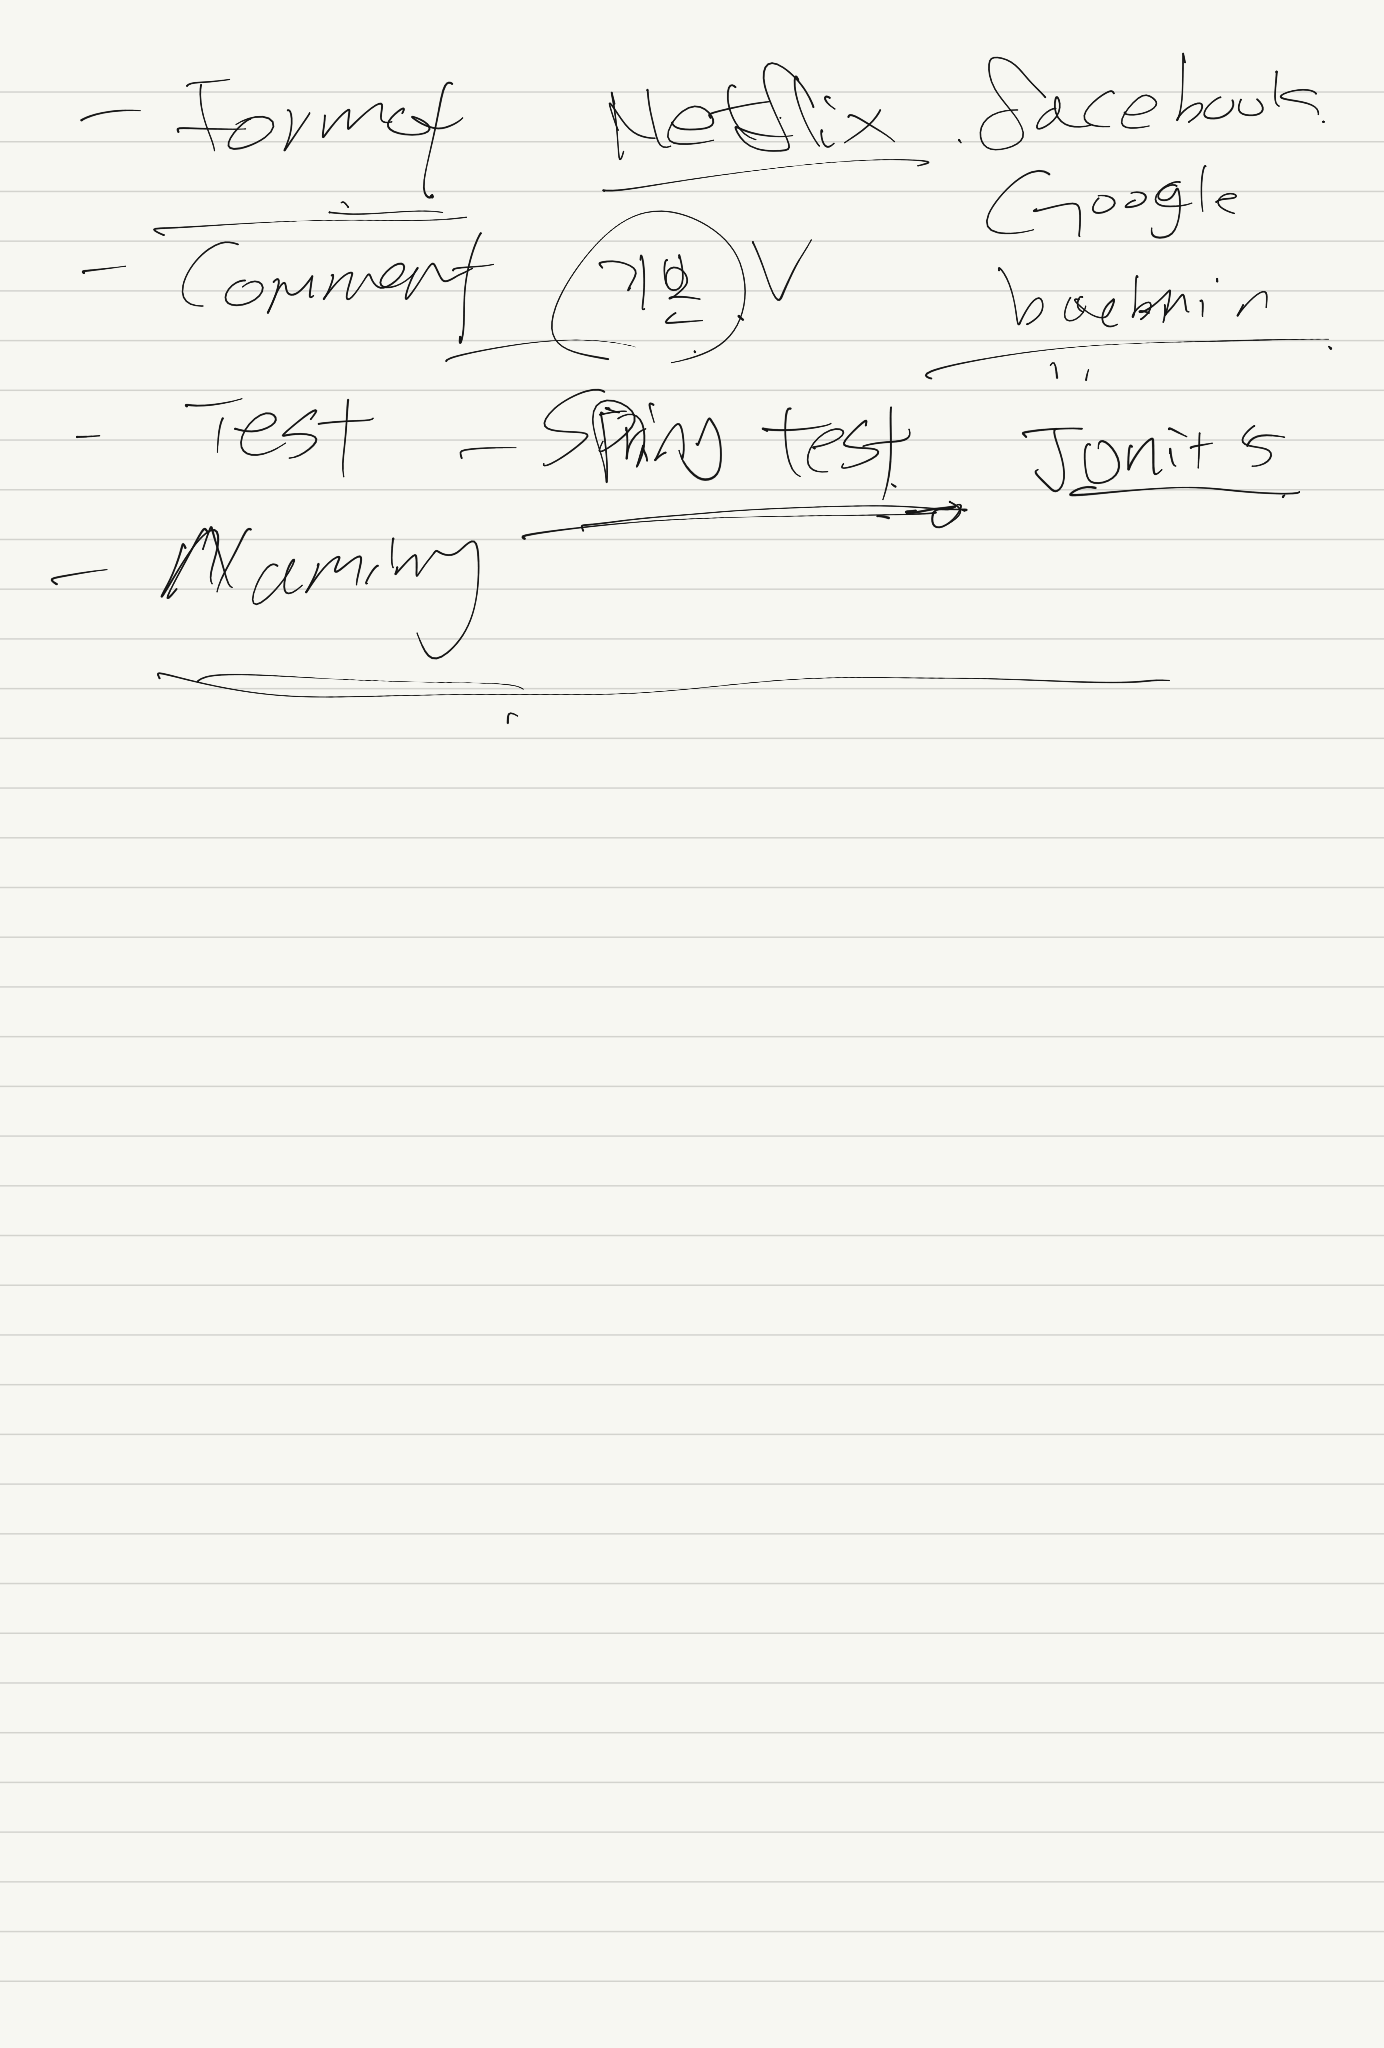 - Format Netflix . facebook.
Google
- Comment 기본 V
baebmin
- Test - Spring test Junit 5
- Naming